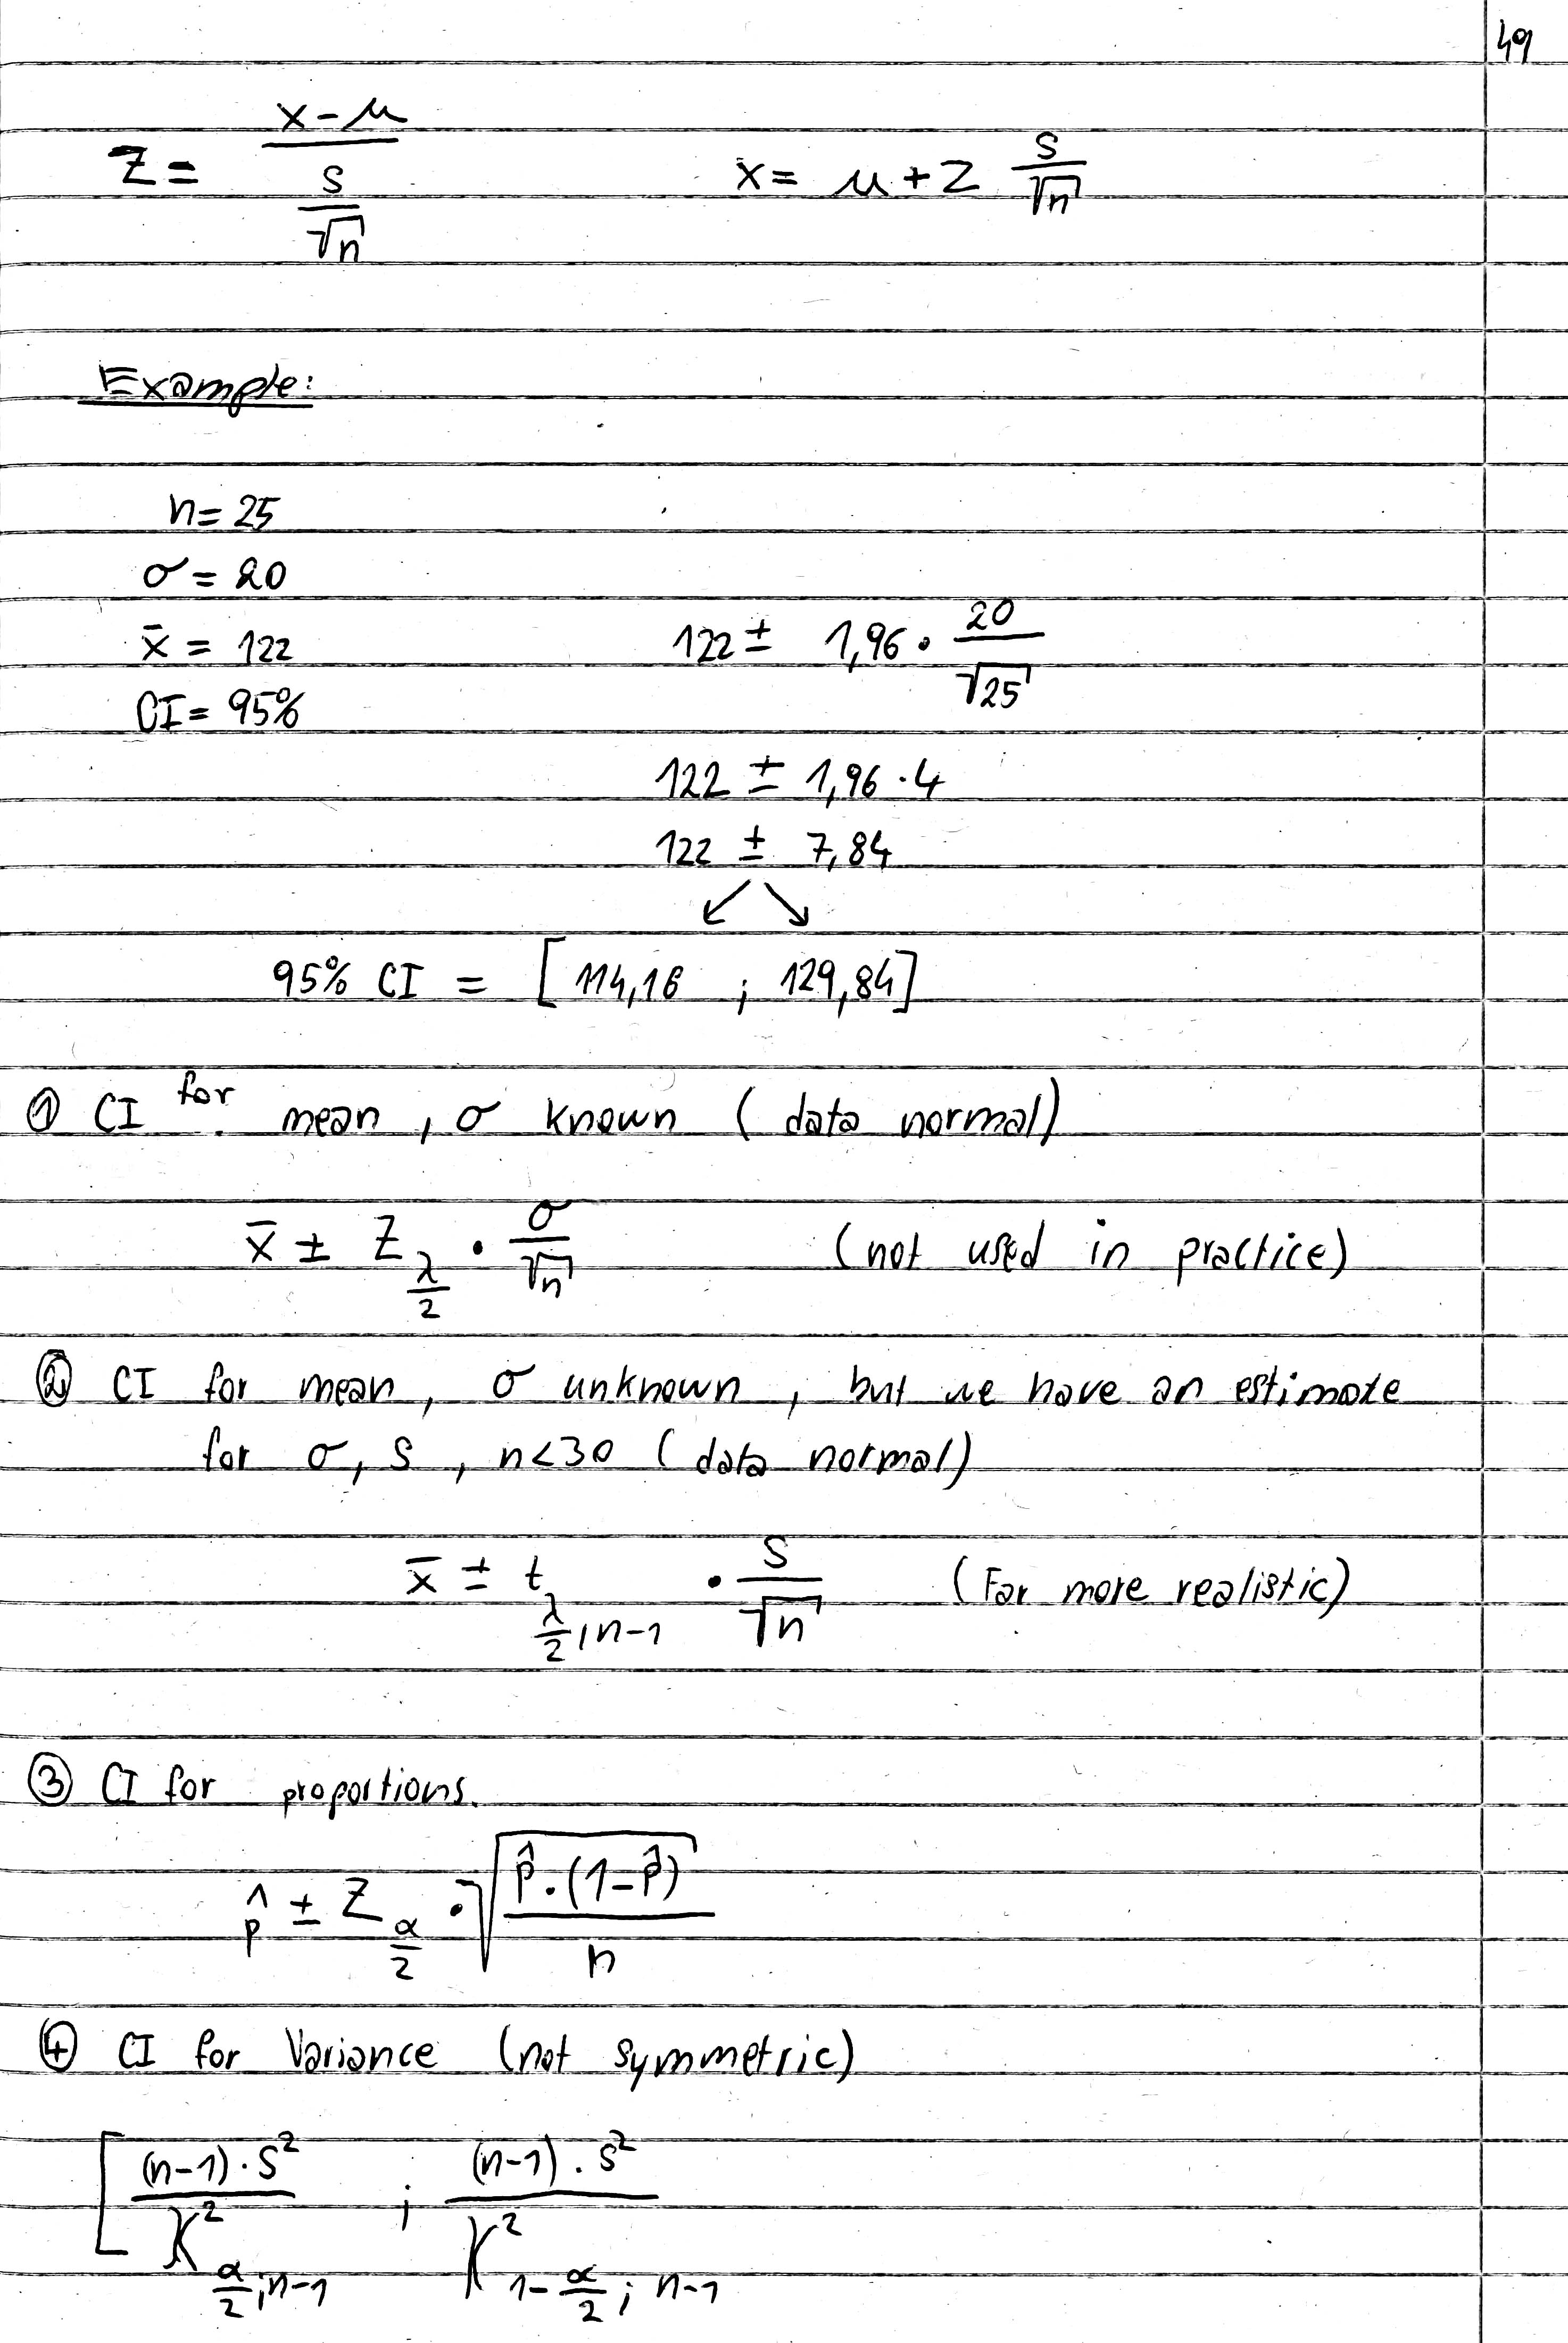 49
Z = (x − μ) / (s/√n)    x = μ + Z s/√n
Example:
n = 25
σ = 20
x̄ = 122    122 ± 1,96 · 20/√25
CI = 95%
122 ± 1,96 · 4
122 ± 7,84
↙ ↘
95% CI = [114,16 ; 129,84]
① CI for mean, σ known (data normal)
x̄ ± Z_(λ/2) · σ/√n    (not used in practice)
② CI for mean, σ unknown, but we have an estimate
for σ, s, n<30 (data normal)
x̄ ± t_(λ/2, n−1) · s/√n    (Far more realistic)
③ CI for proportions.
p̂ ± Z_(α/2) · √(p̂·(1−p̂)/n)
④ CI for Variance (not symmetric)
[ (n−1)·S² / χ²_(α/2; n−1) ; (n−1)·S² / χ²_(1−α/2; n−1)